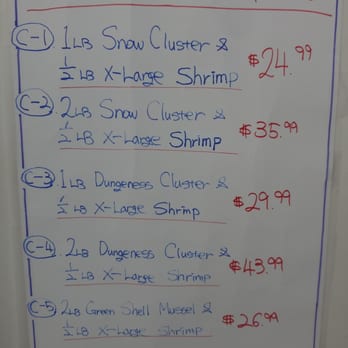 C-1 1LB Snow Cluster &
1/2 LB X-Large Shrimp $24.99
C-2 2LB Snow Cluster &
1/2 LB X-Large Shrimp $35.99
C-3 1LB Dungeness Cluster &
1/2 LB X-Large Shrimp $29.99
C-4 2LB Dungeness Cluster &
1/2 LB X-Large Shrimp $43.99
C-5 2LB Green Shell Mussel &
1/2 LB X-Large Shrimp $26.99